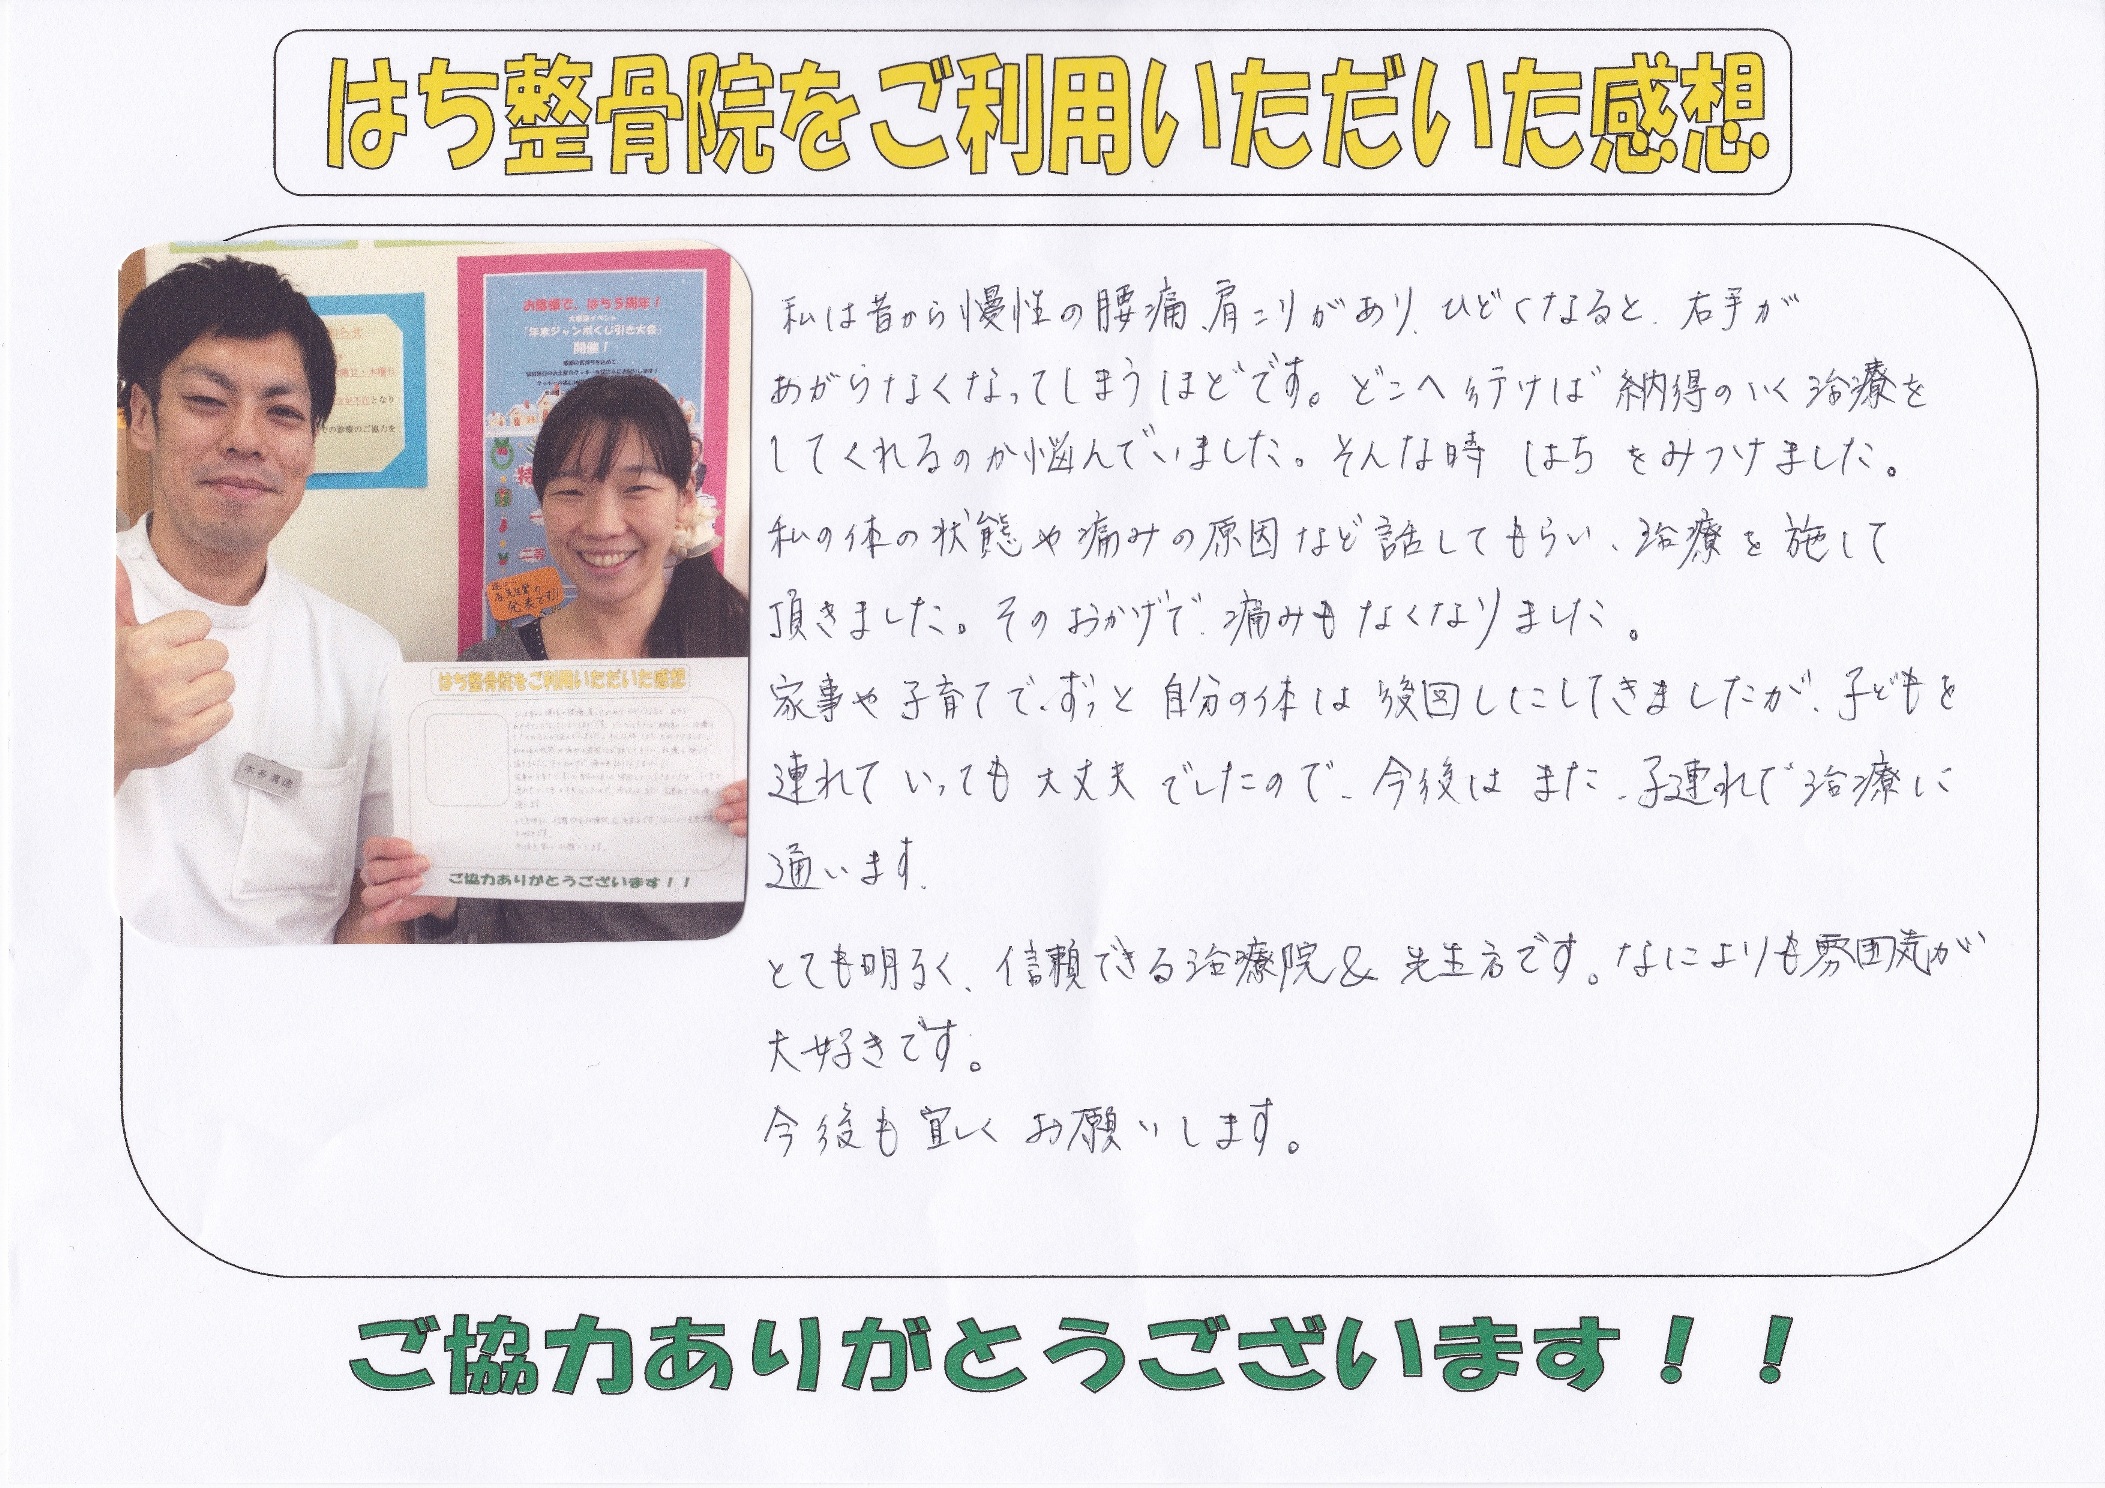 はち整骨院をご利用いただいた感想
お陰様で、はち5周年！
「年末ジャンボくじ引き大会」
開催！
はち整骨院をご利用いただいた感想
ご協力ありがとうございます！！
私は昔から慢性の腰痛、肩こりがあり、ひどくなると、右手が
あがらなくなってしまうほどです。どこへ行けば納得のいく治療を
してくれるのか悩んでいました。そんな時 はち をみつけました。
私の体の状態や痛みの原因など話してもらい、治療を施して
頂きました。そのおかげで、痛みもなくなりました。
家事や子育てで、ずっと自分の体は後回しにしてきましたが、子どもを
連れていっても大丈夫でしたので、今後はまた、子連れで治療に
通います。
とても明るく、信頼できる治療院＆先生方です。なによりも雰囲気が
大好きです。
今後も宜しくお願いします。
ご協力ありがとうございます！！